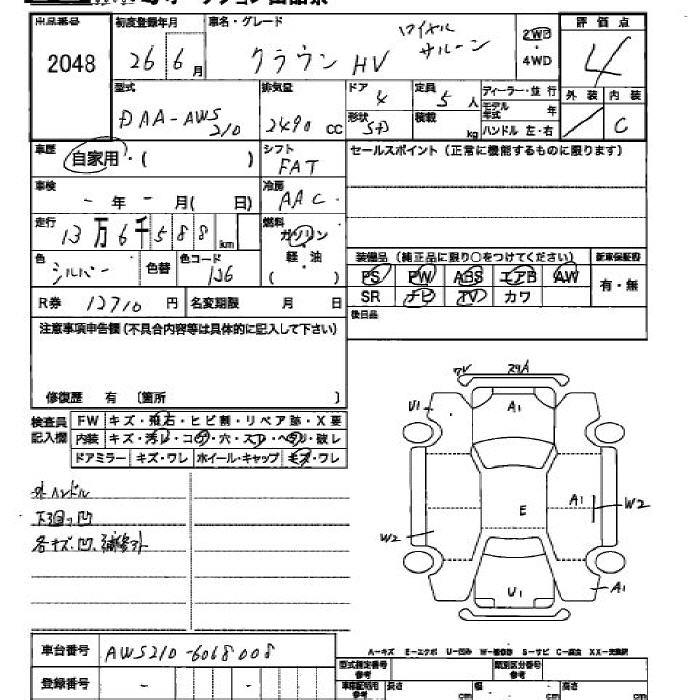 出品番号 初度登録年月 車名・グレード 2WD・4WD 評価点
2048 26年 6月 クラウン HV ロイヤルサルーン 4
型式 排気量 ドア 定員 ディーラー・並行 外装 内装
DAA-AWS210 2490 CC 4 5人 モデル年式 年 / C
形状 積載 ハンドル 左・右
SD kg
車歴 シフト セールスポイント(正常に機能するものに限ります)
自家用・( ) FAT
車検 冷房
- 年 - 月( 日) AAC
走行 燃料
13万6千588 km ガソリン
軽・油
( )
色 色替 色コード 装備品(純正品に限り○をつけてください) 新車保証書
シルバー 1J6 PS PW ABS エアB AW 有・無
SR ナビ TV カワ
R券 12710 円 名変期限 月 日 後日品
注意事項申告欄(不具合内容等は具体的に記入して下さい)
修復歴 有 〔箇所 〕
検査員記入欄 FW キズ・飛石・ヒビ割・リペア跡・X要
内装 キズ・汚レ・コゲ・穴・スレ・ヘタリ・破レ
ドアミラー キズ・ワレ ホイール・キャップ キズ・ワレ
外ハンドル
下廻り凹
各キズ、凹、補修跡
U1 A1
A1 W2
E
W2
U1 A1
A-キズ E-エクボ U-凹み W-補修跡 S-サビ C-腐食 XX-交換済
車台番号 AWS210-6068008
型式指定番号 類別区分番号
登録番号 - - 参考 長さ cm 幅 cm 高さ cm